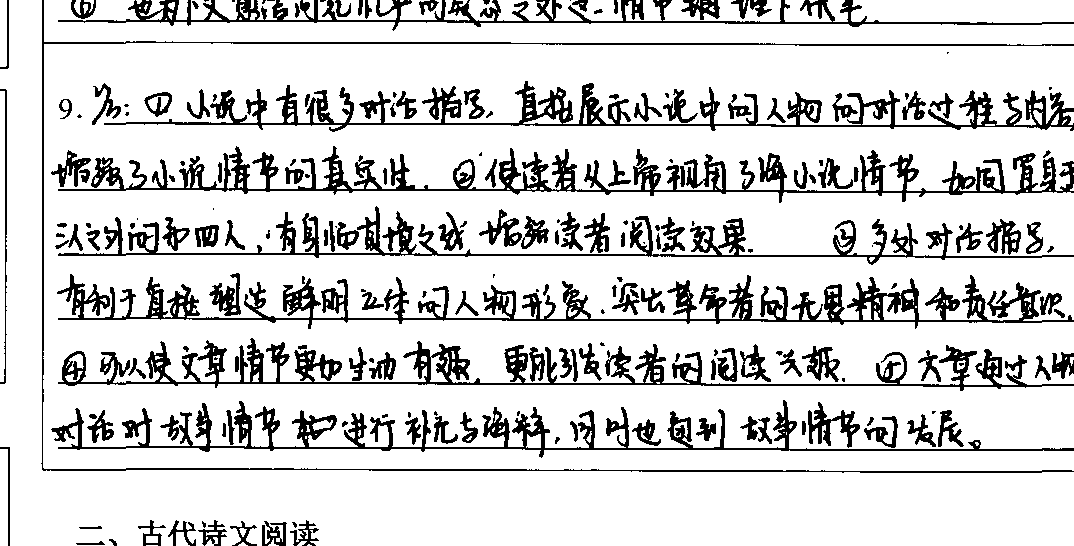 ⑥ 也为下文
9. 答: ①.小说中有很多对话描写,直接展示小说中的人物的对话过程与内容
增强了小说情节的真实性.②使读者从上帝视角了解小说情节,如同置身于
之外的第四人,有身临其境之感,增强读者阅读效果. ③多处对话描写,
有利于直接塑造鲜明立体的人物形象.突出革命者的无畏精神和责任意识.
④可以使文章情节更加生动有趣,更能引发读者的阅读兴趣. ⑤文章通过人物
对话对故事情节进行补充与解释,同时也起到故事情节的发展。
二、古代诗文阅读